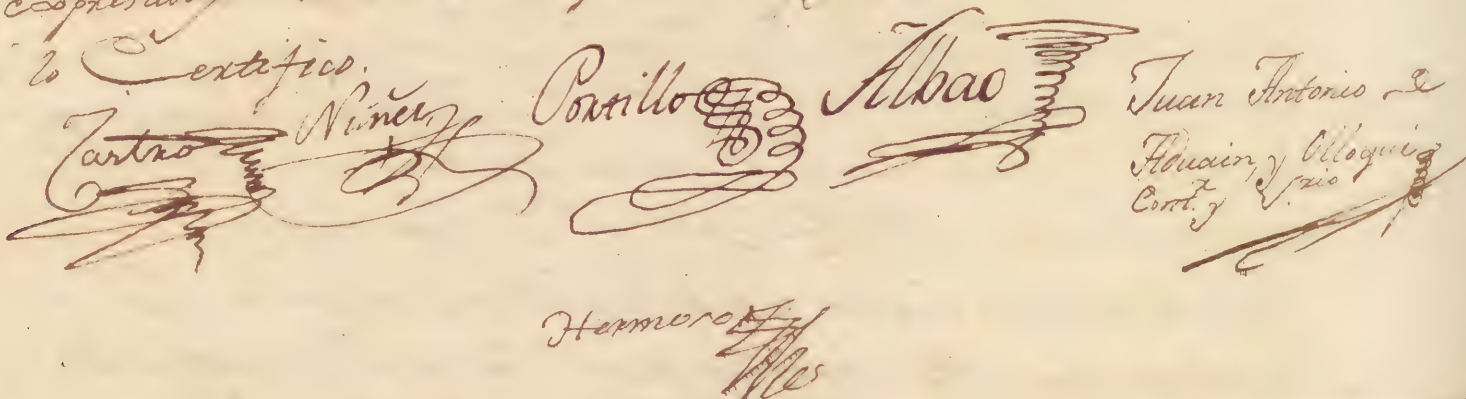 lo Certifico.
Castro Nuñez Portillo Albao Juan Antonio de
Aduain, y Olloqui
Cont.r y Srio
Hermoso